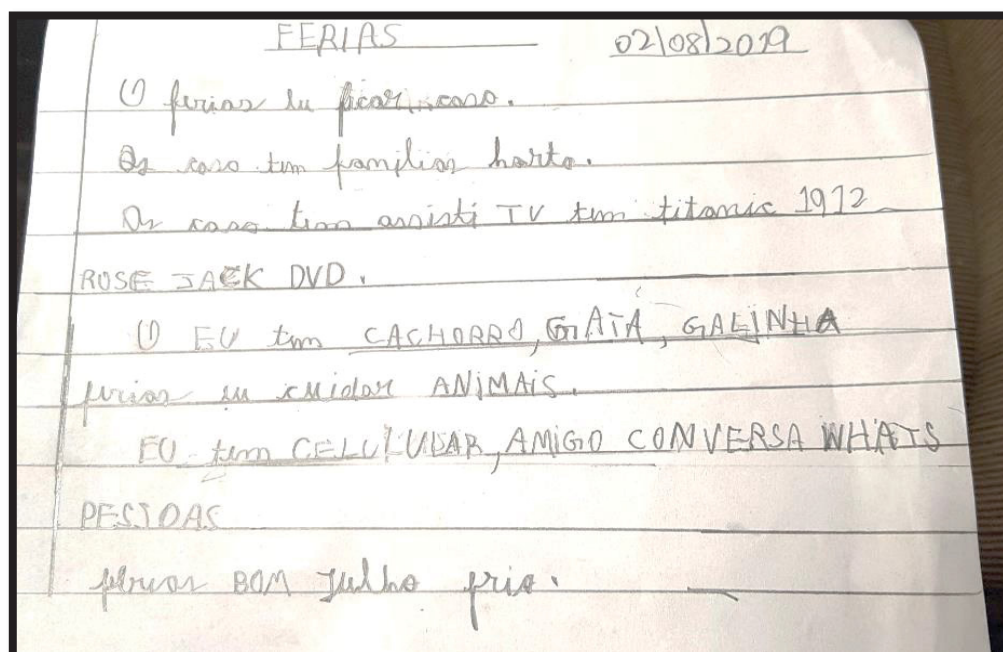 FERIAS 02/08/2019
O ferias eu ficar casa.
As casa tem familias harto.
As casa tem assisti TV tem titanic 1912
ROSE JACK DVD.
O EU tem CACHORRO, GATA, GALINHA
ferias eu cuidar ANIMAIS.
EU tem CELULULAR, AMIGO CONVERSA WHATS
PESSOAS
ferias BOM Julho frio.